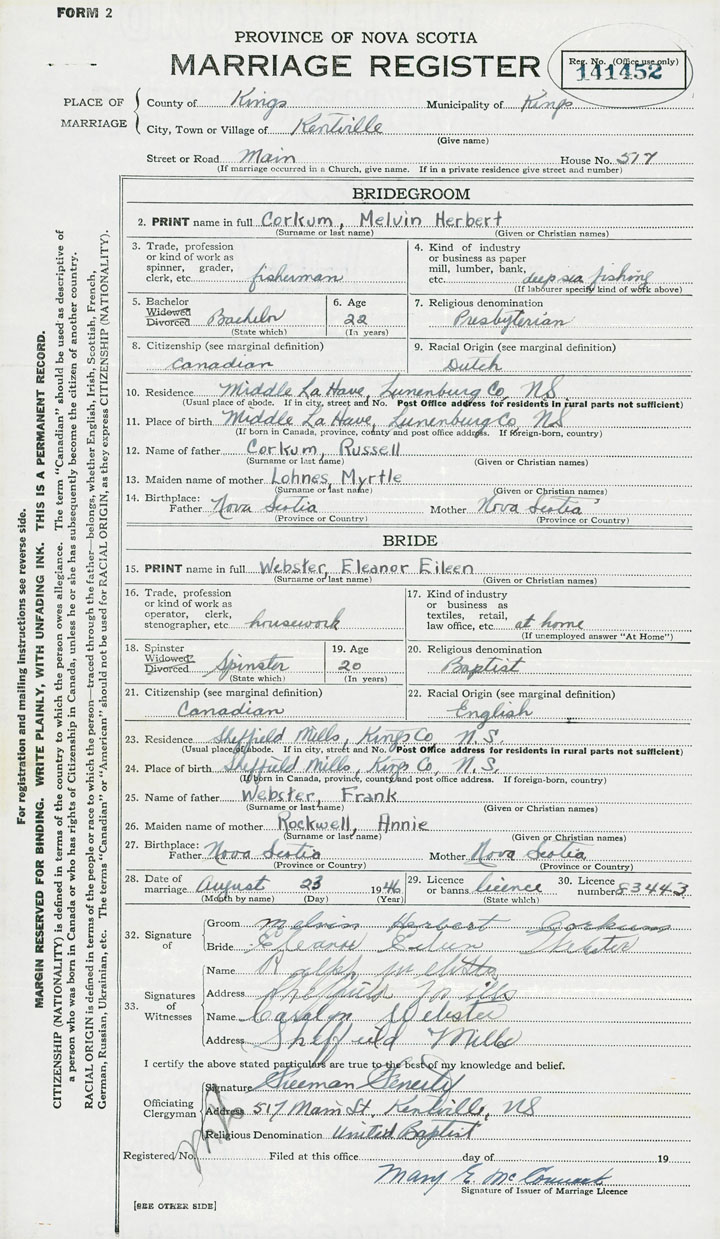 FORM 2
PROVINCE OF NOVA SCOTIA
MARRIAGE REGISTER
Reg. No. (Office use only)
141452
PLACE OF MARRIAGE
County of Kings Municipality of Kings
City, Town or Village of Kentville
(Give name)
Street or Road Main House No. 517
(If marriage occurred in a Church, give name. If in a private residence give street and number)
BRIDEGROOM
2. PRINT name in full Corkum, Melvin Herbert
(Surname or last name) (Given or Christian names)
3. Trade, profession or kind of work as spinner, grader, clerk, etc. fisherman
4. Kind of industry or business as paper mill, lumber, bank, etc. deep sea fishing
(If labourer specify kind of work above)
5. Bachelor Widowed Divorced Bachelor
(State which)
6. Age 22
(In years)
7. Religious denomination Presbyterian
8. Citizenship (see marginal definition) Canadian
9. Racial Origin (see marginal definition) Dutch
10. Residence Middle La Have, Lunenburg Co, NS
(Usual place of abode. If in city, street and No. Post Office address for residents in rural parts not sufficient)
11. Place of birth Middle La Have, Lunenburg Co, NS
(If born in Canada, province, county and post office address. If foreign-born, country)
12. Name of father Corkum, Russell
(Surname or last name) (Given or Christian names)
13. Maiden name of mother Lohnes, Myrtle
(Surname or last name) (Given or Christian names)
14. Birthplace: Father Nova Scotia Mother Nova Scotia
(Province or Country) (Province or Country)
BRIDE
15. PRINT name in full Webster, Eleanor Eileen
(Surname or last name) (Given or Christian names)
16. Trade, profession or kind of work as operator, clerk, stenographer, etc. housework
17. Kind of industry or business as textiles, retail, law office, etc. at home
(If unemployed answer "At Home")
18. Spinster Widowed Divorced Spinster
(State which)
19. Age 20
(In years)
20. Religious denomination Baptist
21. Citizenship (see marginal definition) Canadian
22. Racial Origin (see marginal definition) English
23. Residence Sheffield Mills, Kings Co, N.S.
(Usual place of abode. If in city, street and No. Post Office address for residents in rural parts not sufficient)
24. Place of birth Sheffield Mills, Kings Co, N.S.
(If born in Canada, province, county and post office address. If foreign-born, country)
25. Name of father Webster, Frank
(Surname or last name) (Given or Christian names)
26. Maiden name of mother Rockwell, Annie
(Surname or last name) (Given or Christian names)
27. Birthplace: Father Nova Scotia Mother Nova Scotia
(Province or Country) (Province or Country)
28. Date of marriage August 23 1946
(Month by name) (Day) (Year)
29. Licence or banns licence
(State which)
30. Licence number 83443
32. Signature of
Groom Melvin Herbert Corkum
Bride Eleanor Eileen Webster
33. Signatures of Witnesses
Name
Address Sheffield Mills
Name Carolyn Webster
Address Sheffield Mills
I certify the above stated particulars are true to the best of my knowledge and belief.
Officiating Clergyman
Signature Freeman Fenerty
Address 517 Main St. Kentville, NS
Religious Denomination United Baptist
Registered No. Filed at this office day of 19
Mary E. McCormack
Signature of Issuer of Marriage Licence
[SEE OTHER SIDE]
For registration and mailing instructions see reverse side.
MARGIN RESERVED FOR BINDING. WRITE PLAINLY, WITH UNFADING INK. THIS IS A PERMANENT RECORD.
CITIZENSHIP (NATIONALITY) is defined in terms of the country to which the person owes allegiance. The term "Canadian" should be used as descriptive of
a person who was born in Canada or who has rights of Citizenship in Canada, unless he or she has subsequently become the citizen of another country.
RACIAL ORIGIN is defined in terms of the people or race to which the person—traced through the father—belongs, whether English, Irish, Scottish, French,
German, Russian, Ukrainian, etc. The terms "Canadian" or "American" should not be used for RACIAL ORIGIN, as they express CITIZENSHIP (NATIONALITY).